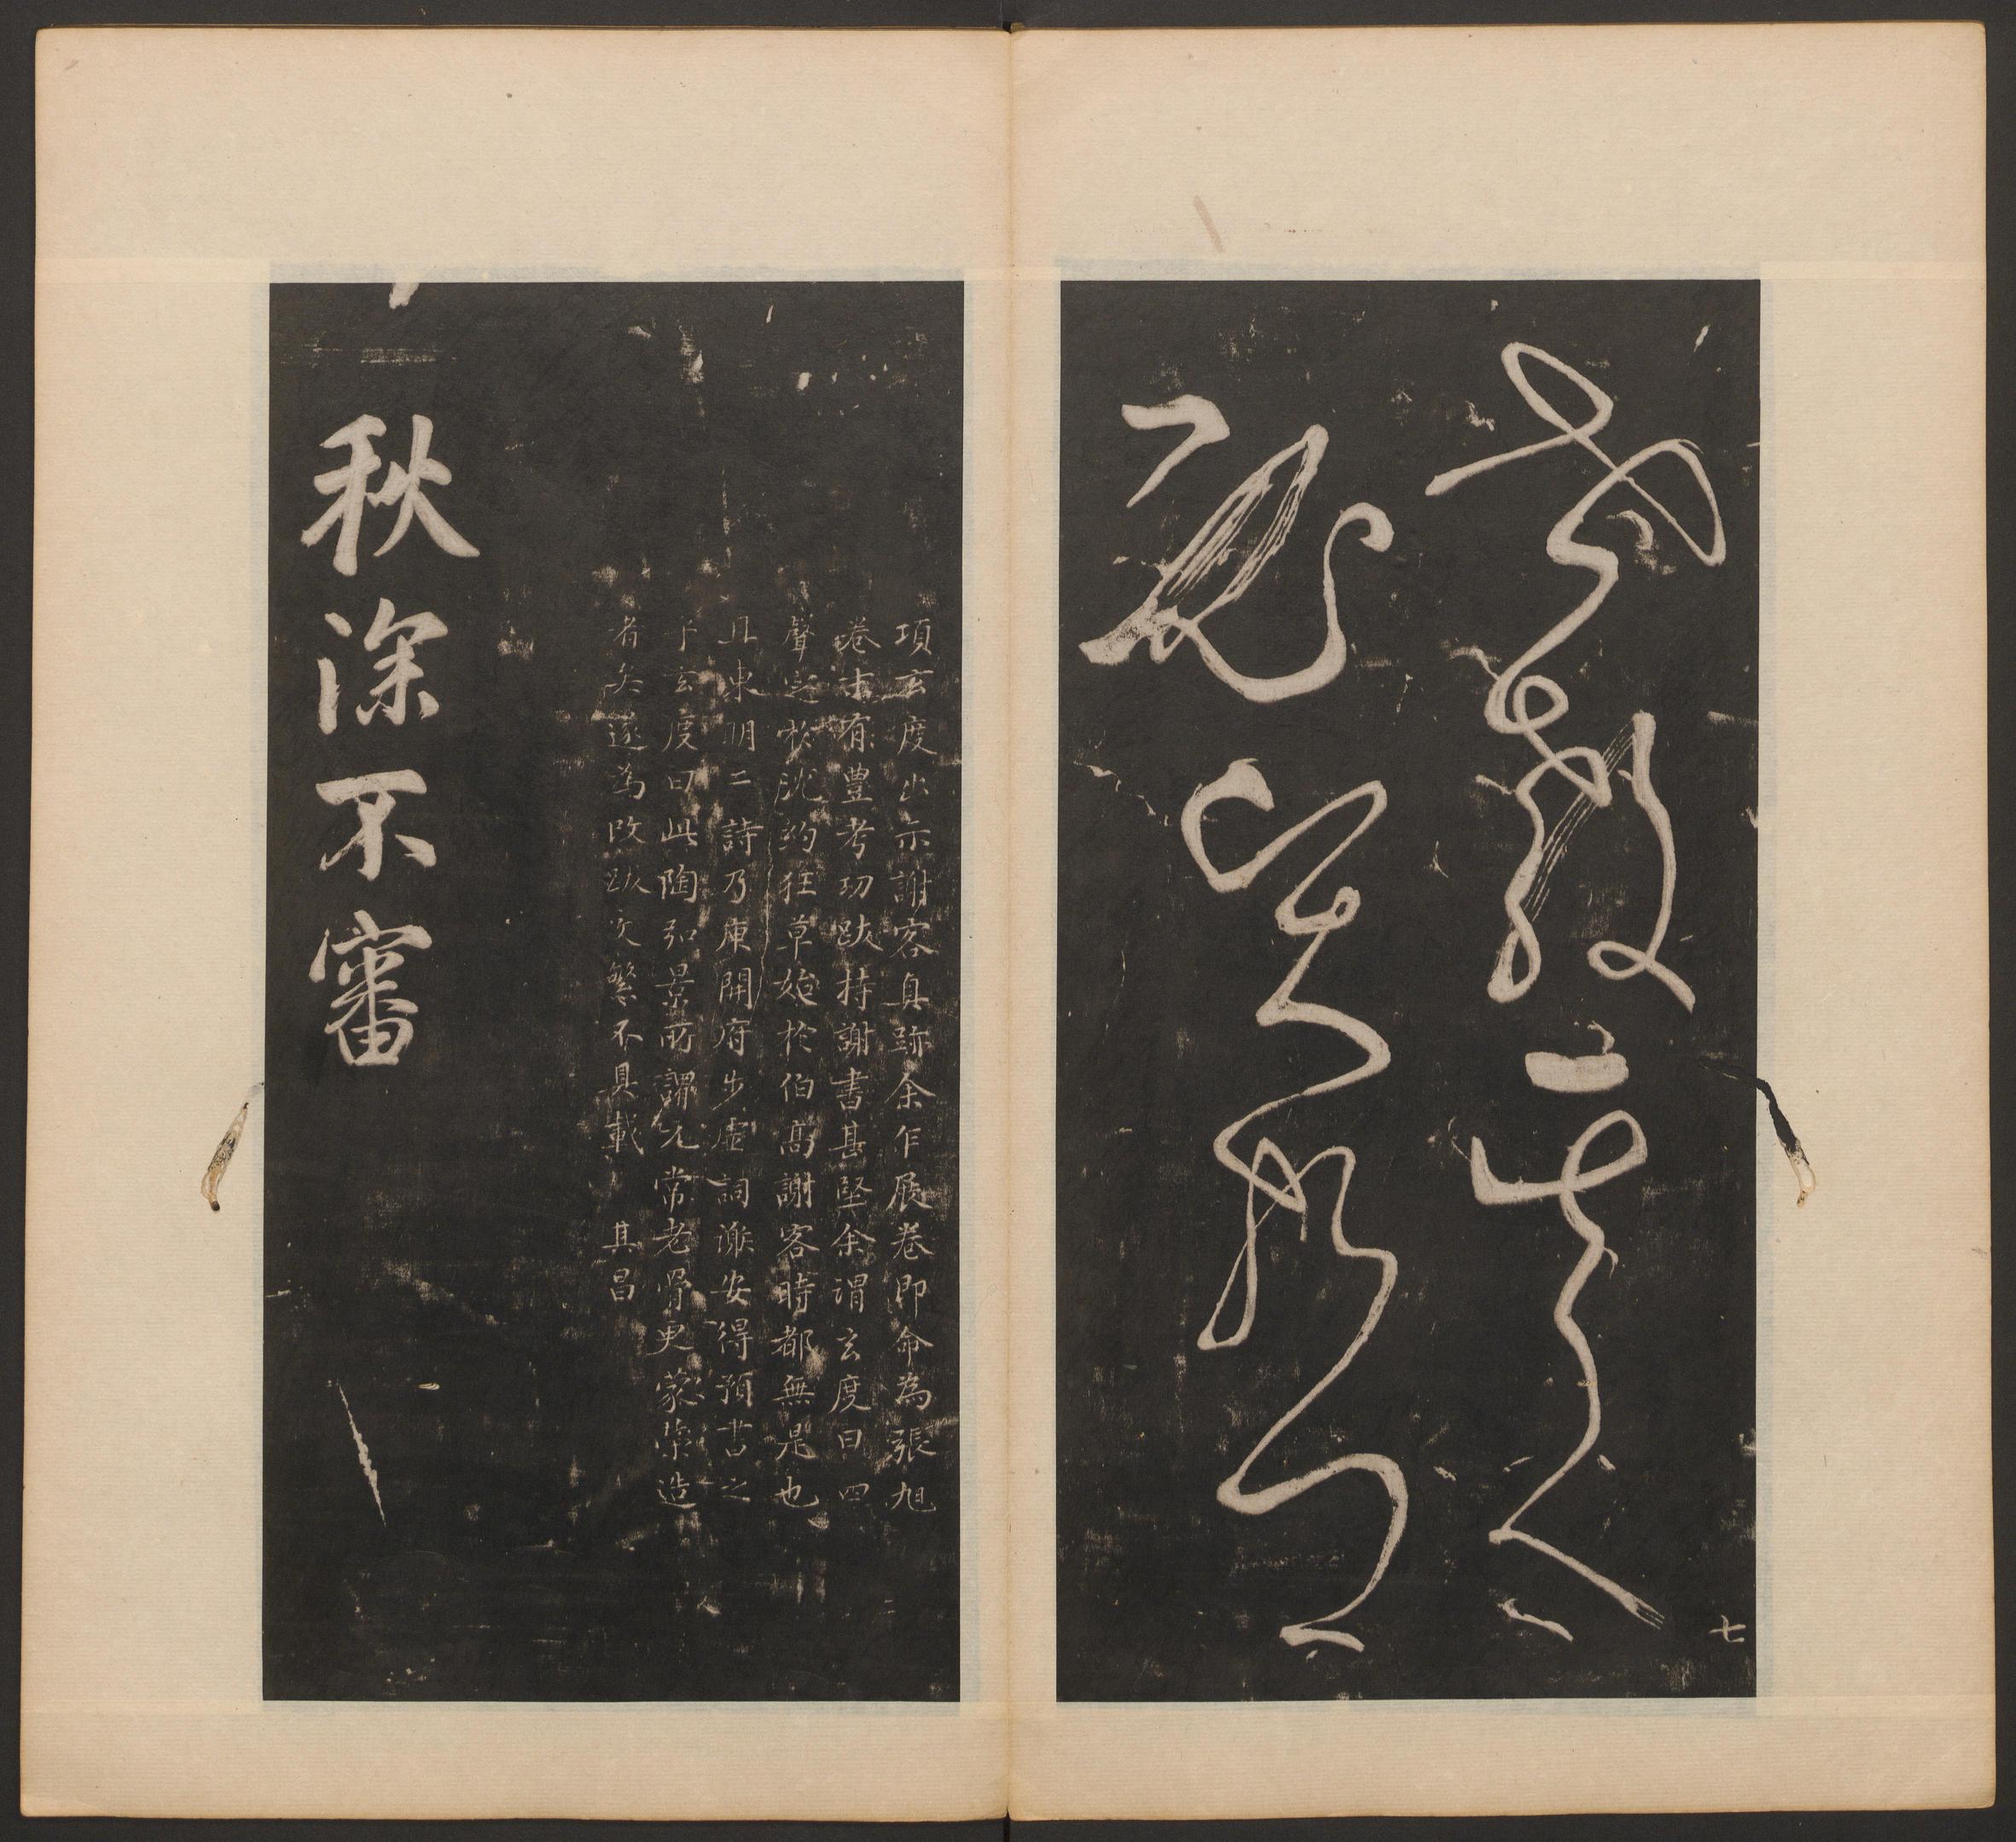 七
世教其人
必賢哲
項玄度出示謝客真跡余乍展卷即命為張旭
卷末有豐考功跋持謝書甚堅余謂玄度曰四
聲定於沈約狂草始於伯高謝客時都無是也
且東明二詩乃庾開府步虛詞謝安得預書之
乎玄度曰此陶弘景所謂元常老骨更蒙榮造
者矣遂為改跋文繁不具載 其昌
秋深不審